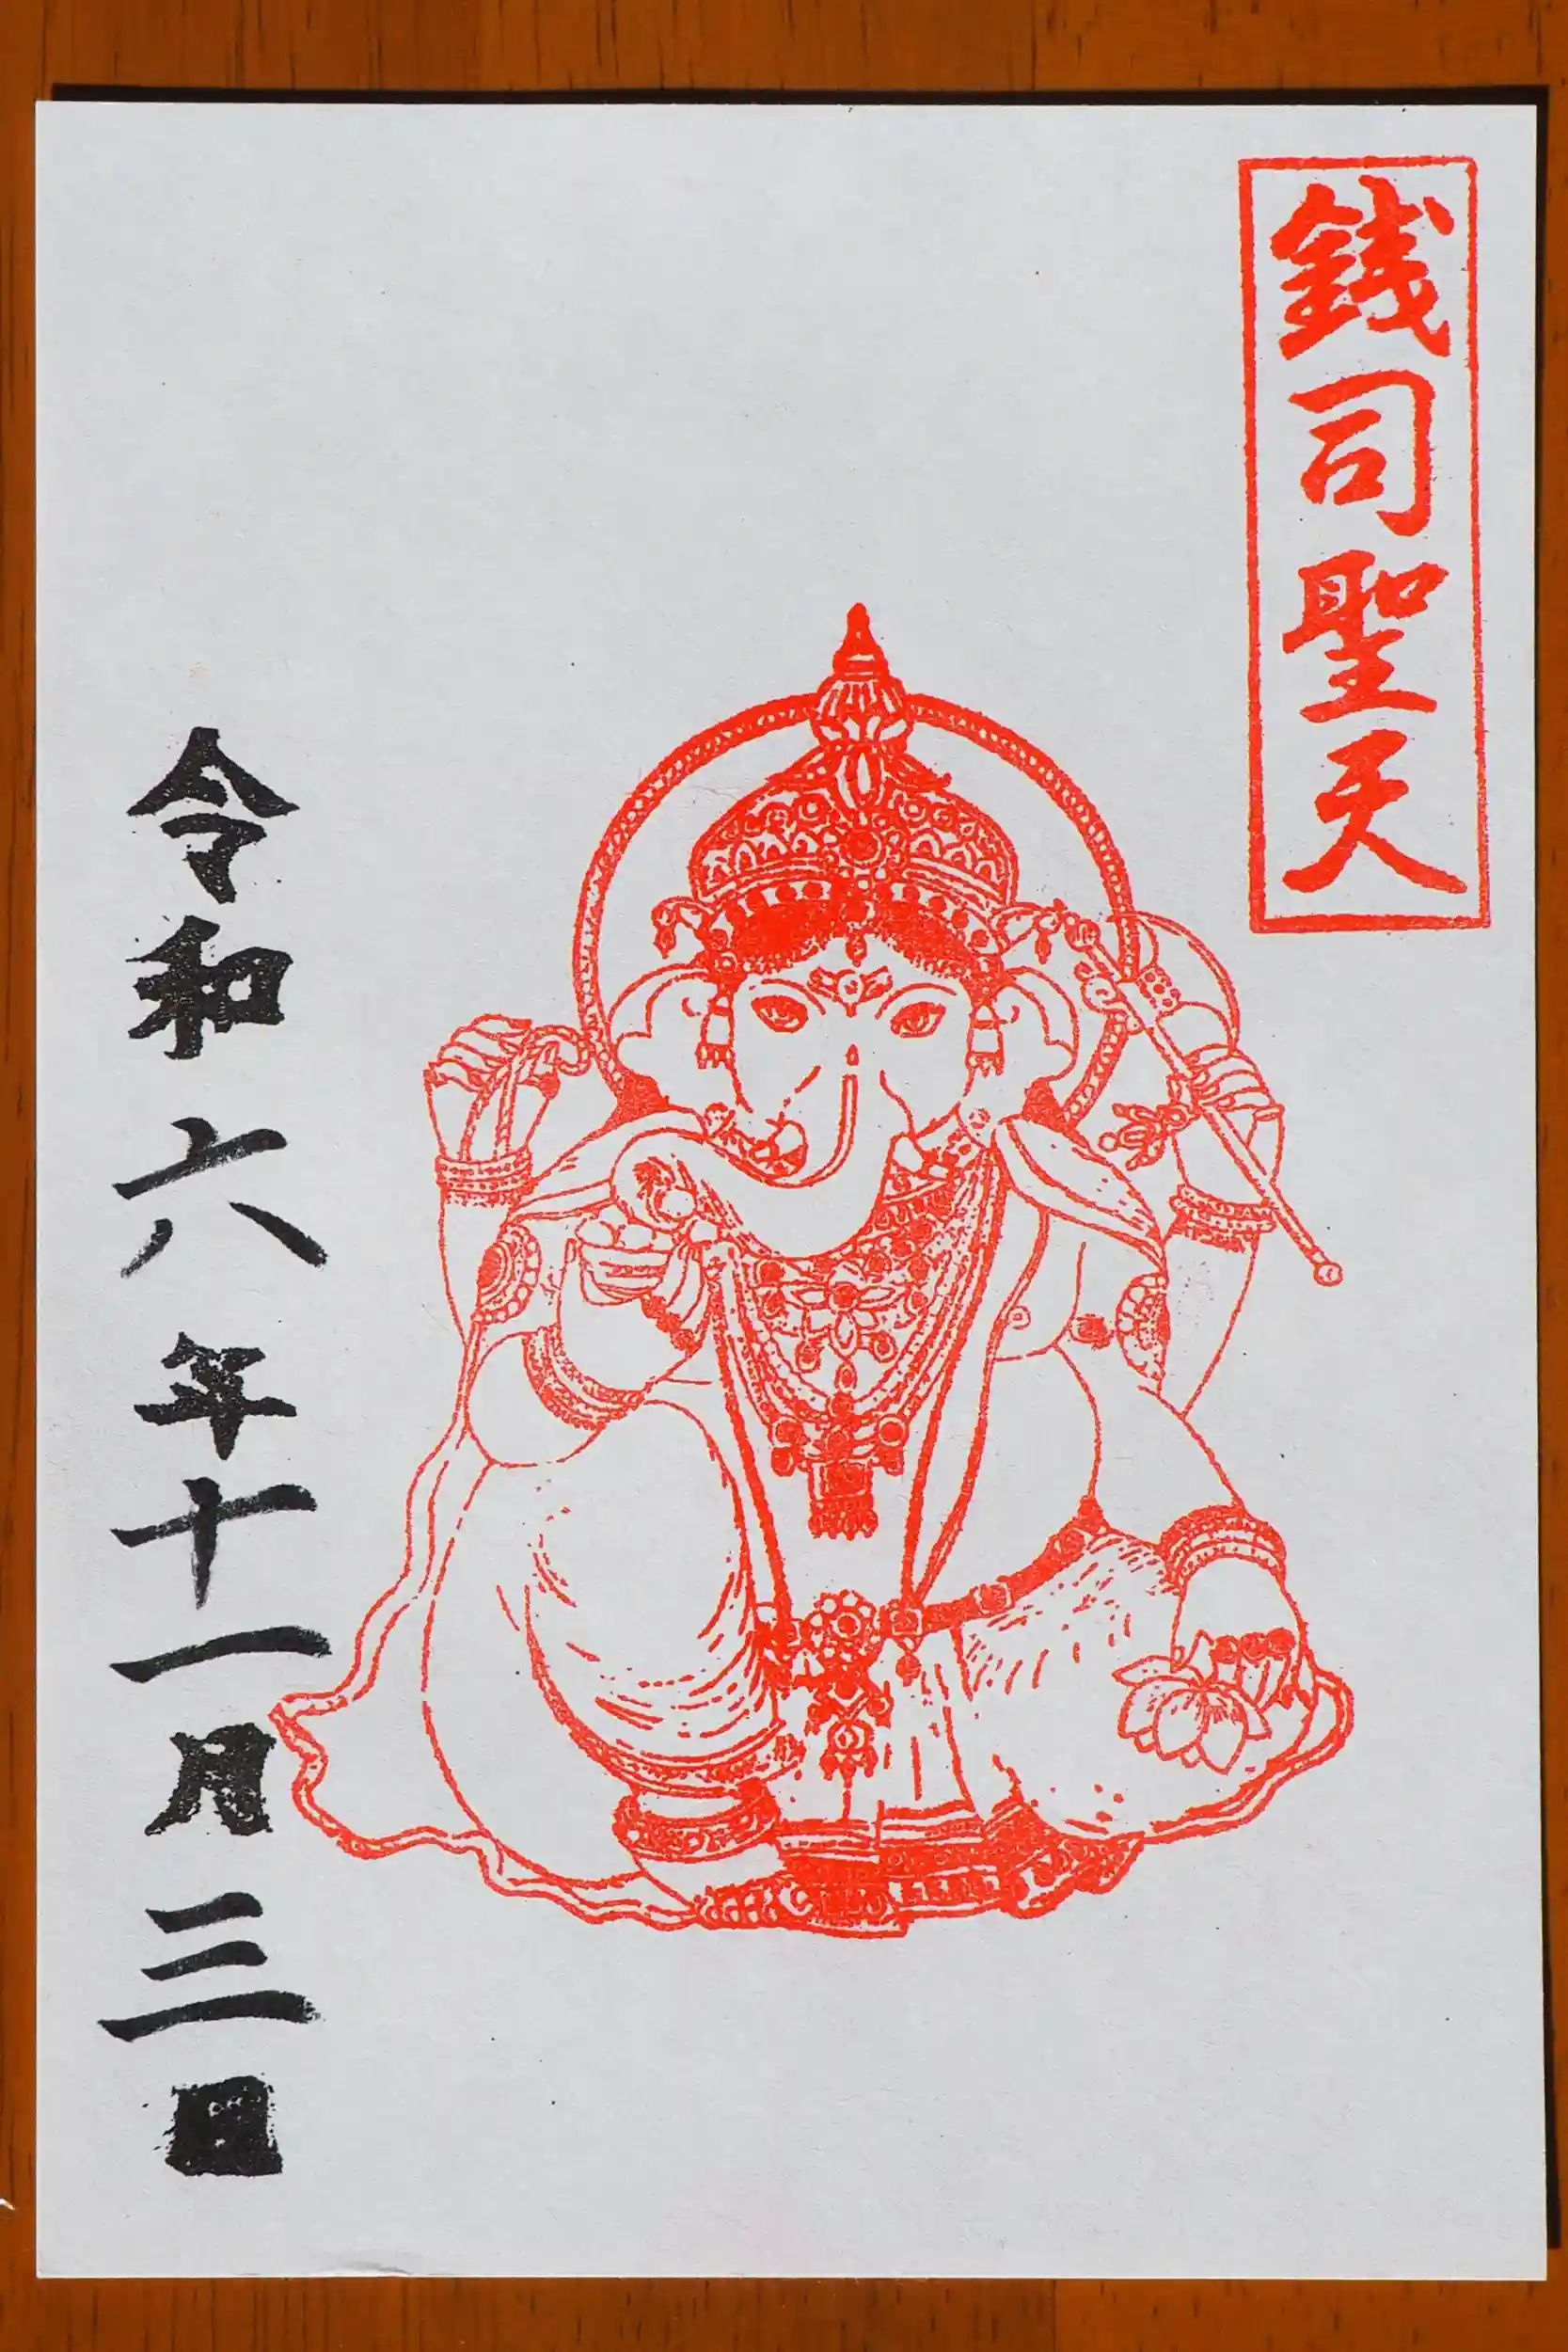 銭司聖天
令和六年十一月三日